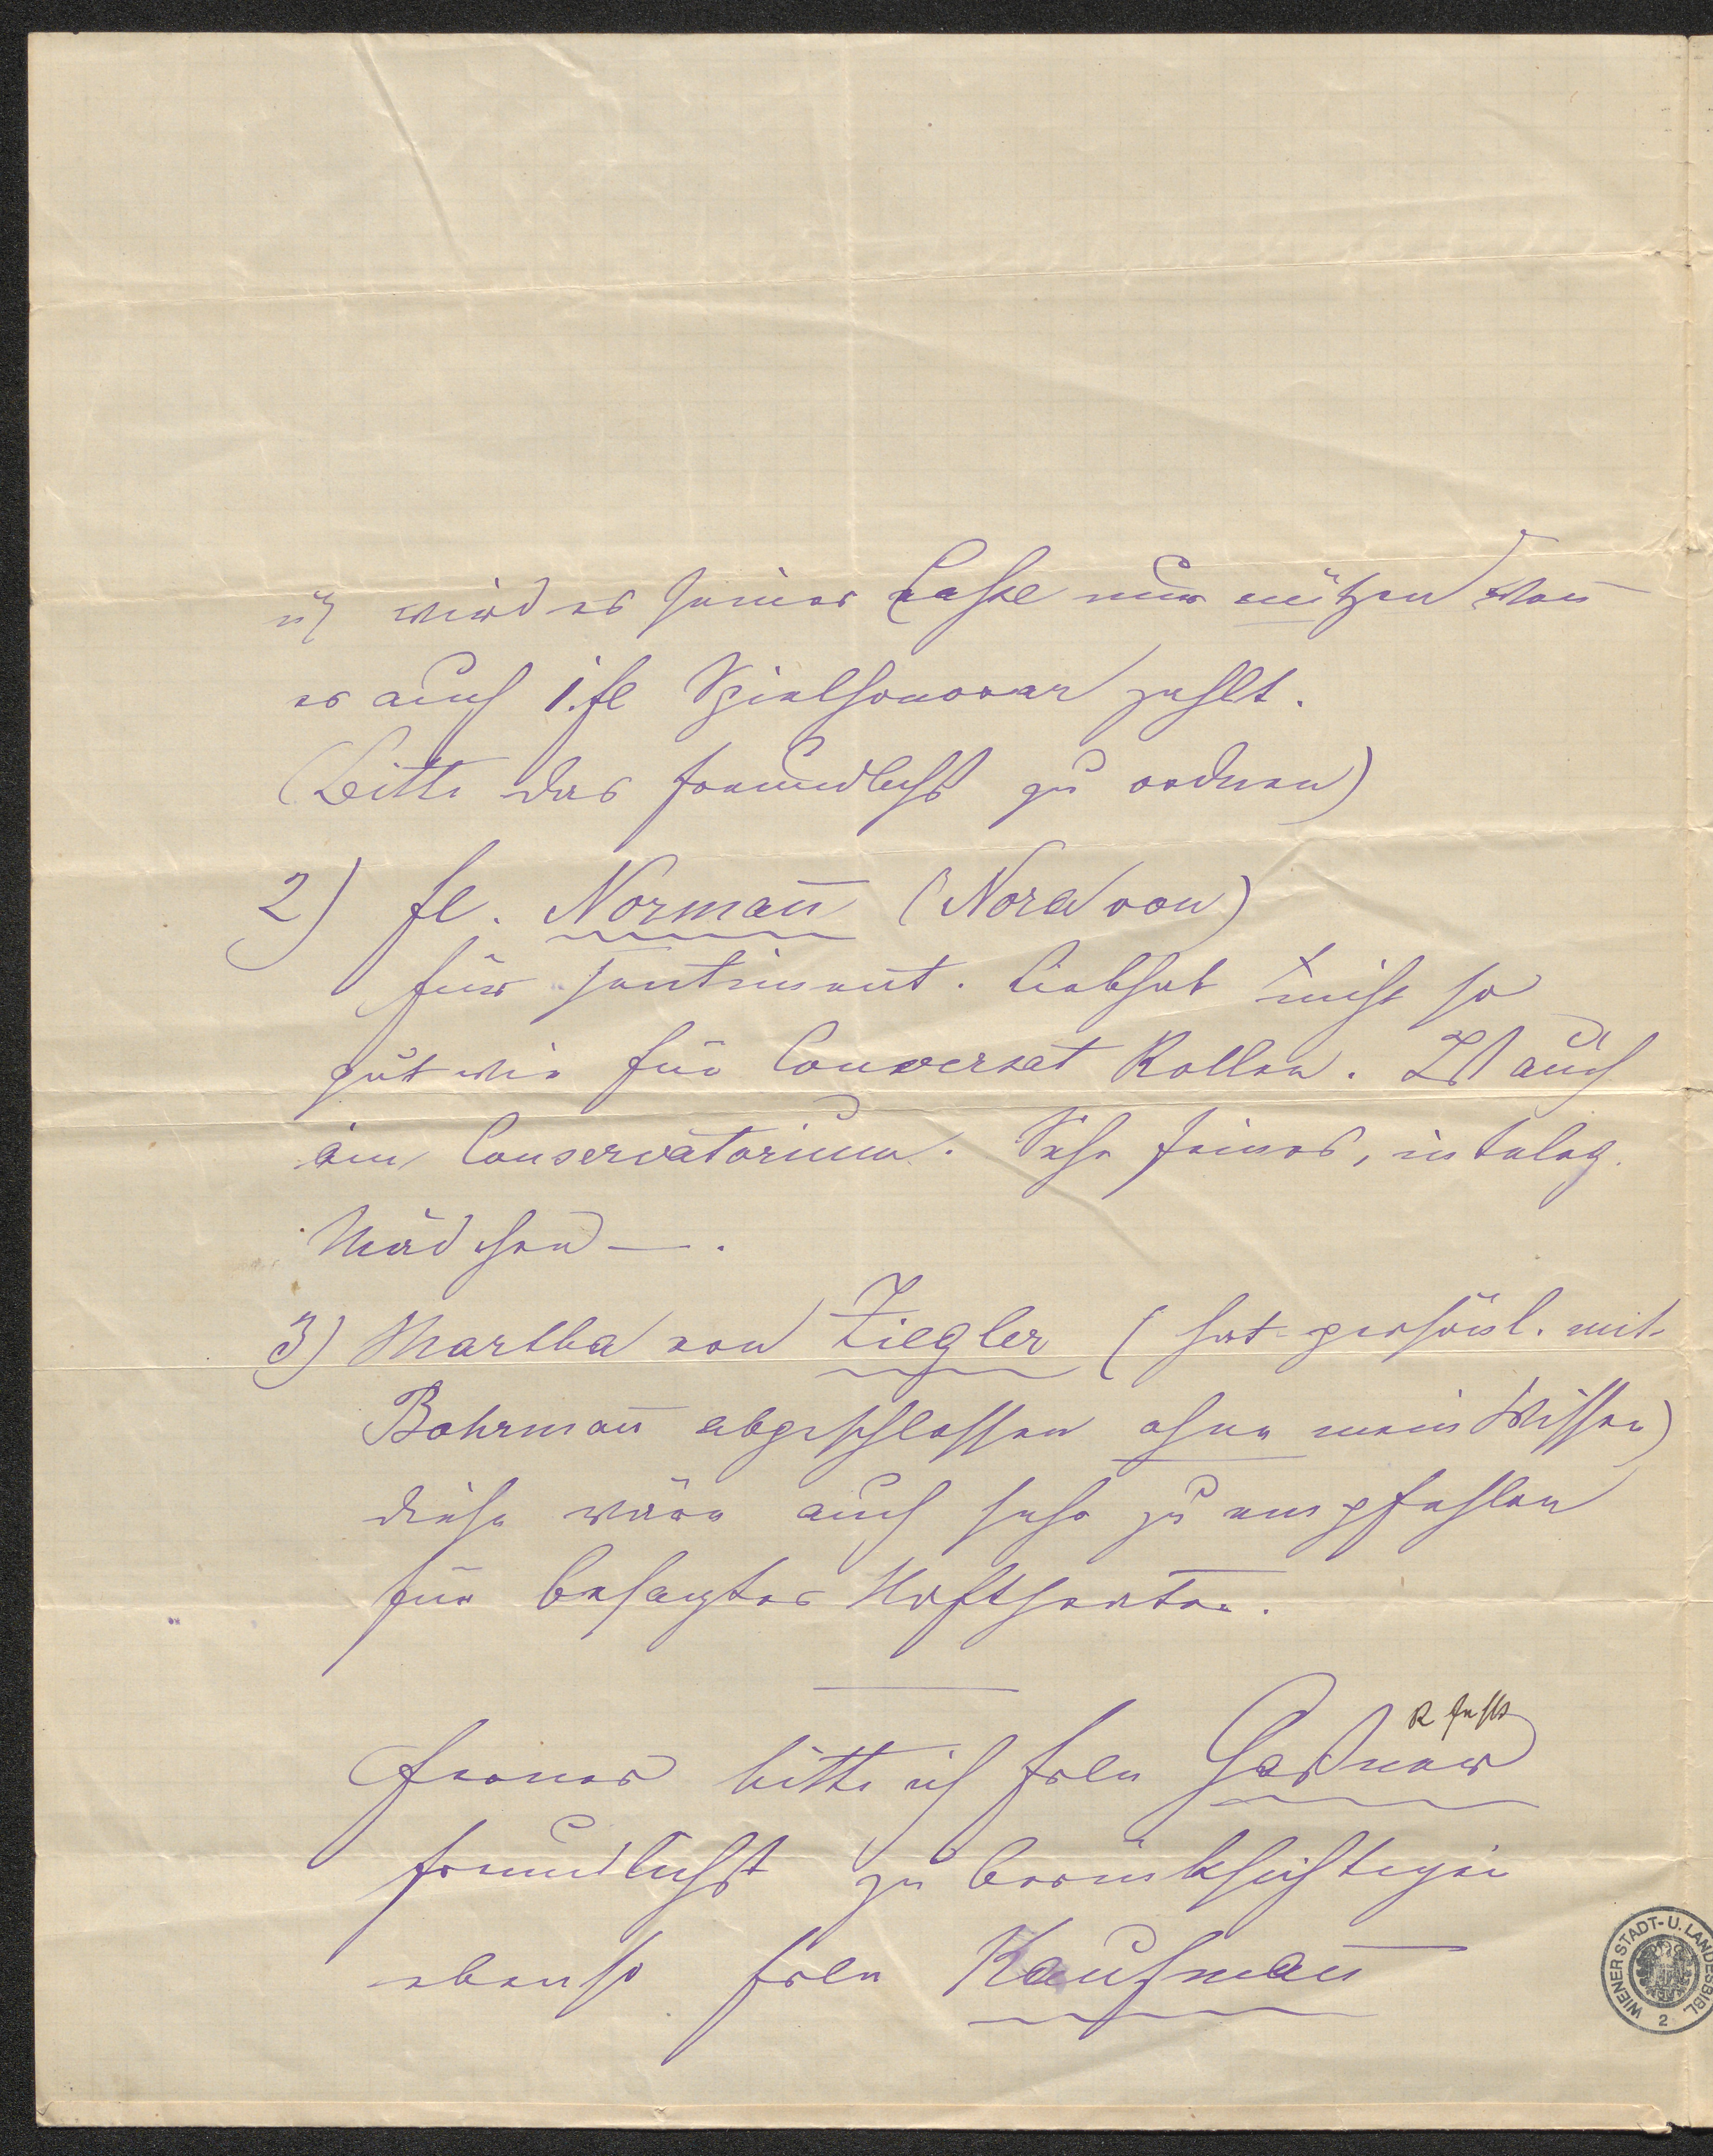 u wird es seiner Casse nur nützen wen̄
er auch 1. fl Spielhonorar zahlt.
(Bitte das freundlichst zu ordnen)
2) Fl. Norman̄ (Nora von)
für sentiment. Liebhab so
gut wie für Conversat Rollen. Ist auch
am Conservatorium. Sehr feines, intelég.
Mädchen —.
3) Martha von Ziegler (hat persönl. mit
Bohrman̄ abgeschlossen ohne mein Wissen)
diese wäre auch sehr zu empfehlen
für besagtes
R fehlt
Ferner bitte ich Frln Gaßner
freundlichst zu berücksichtigen
ebenso Frln Kaufman̄
WIENER STADT- U. LANDESBIBL.
2